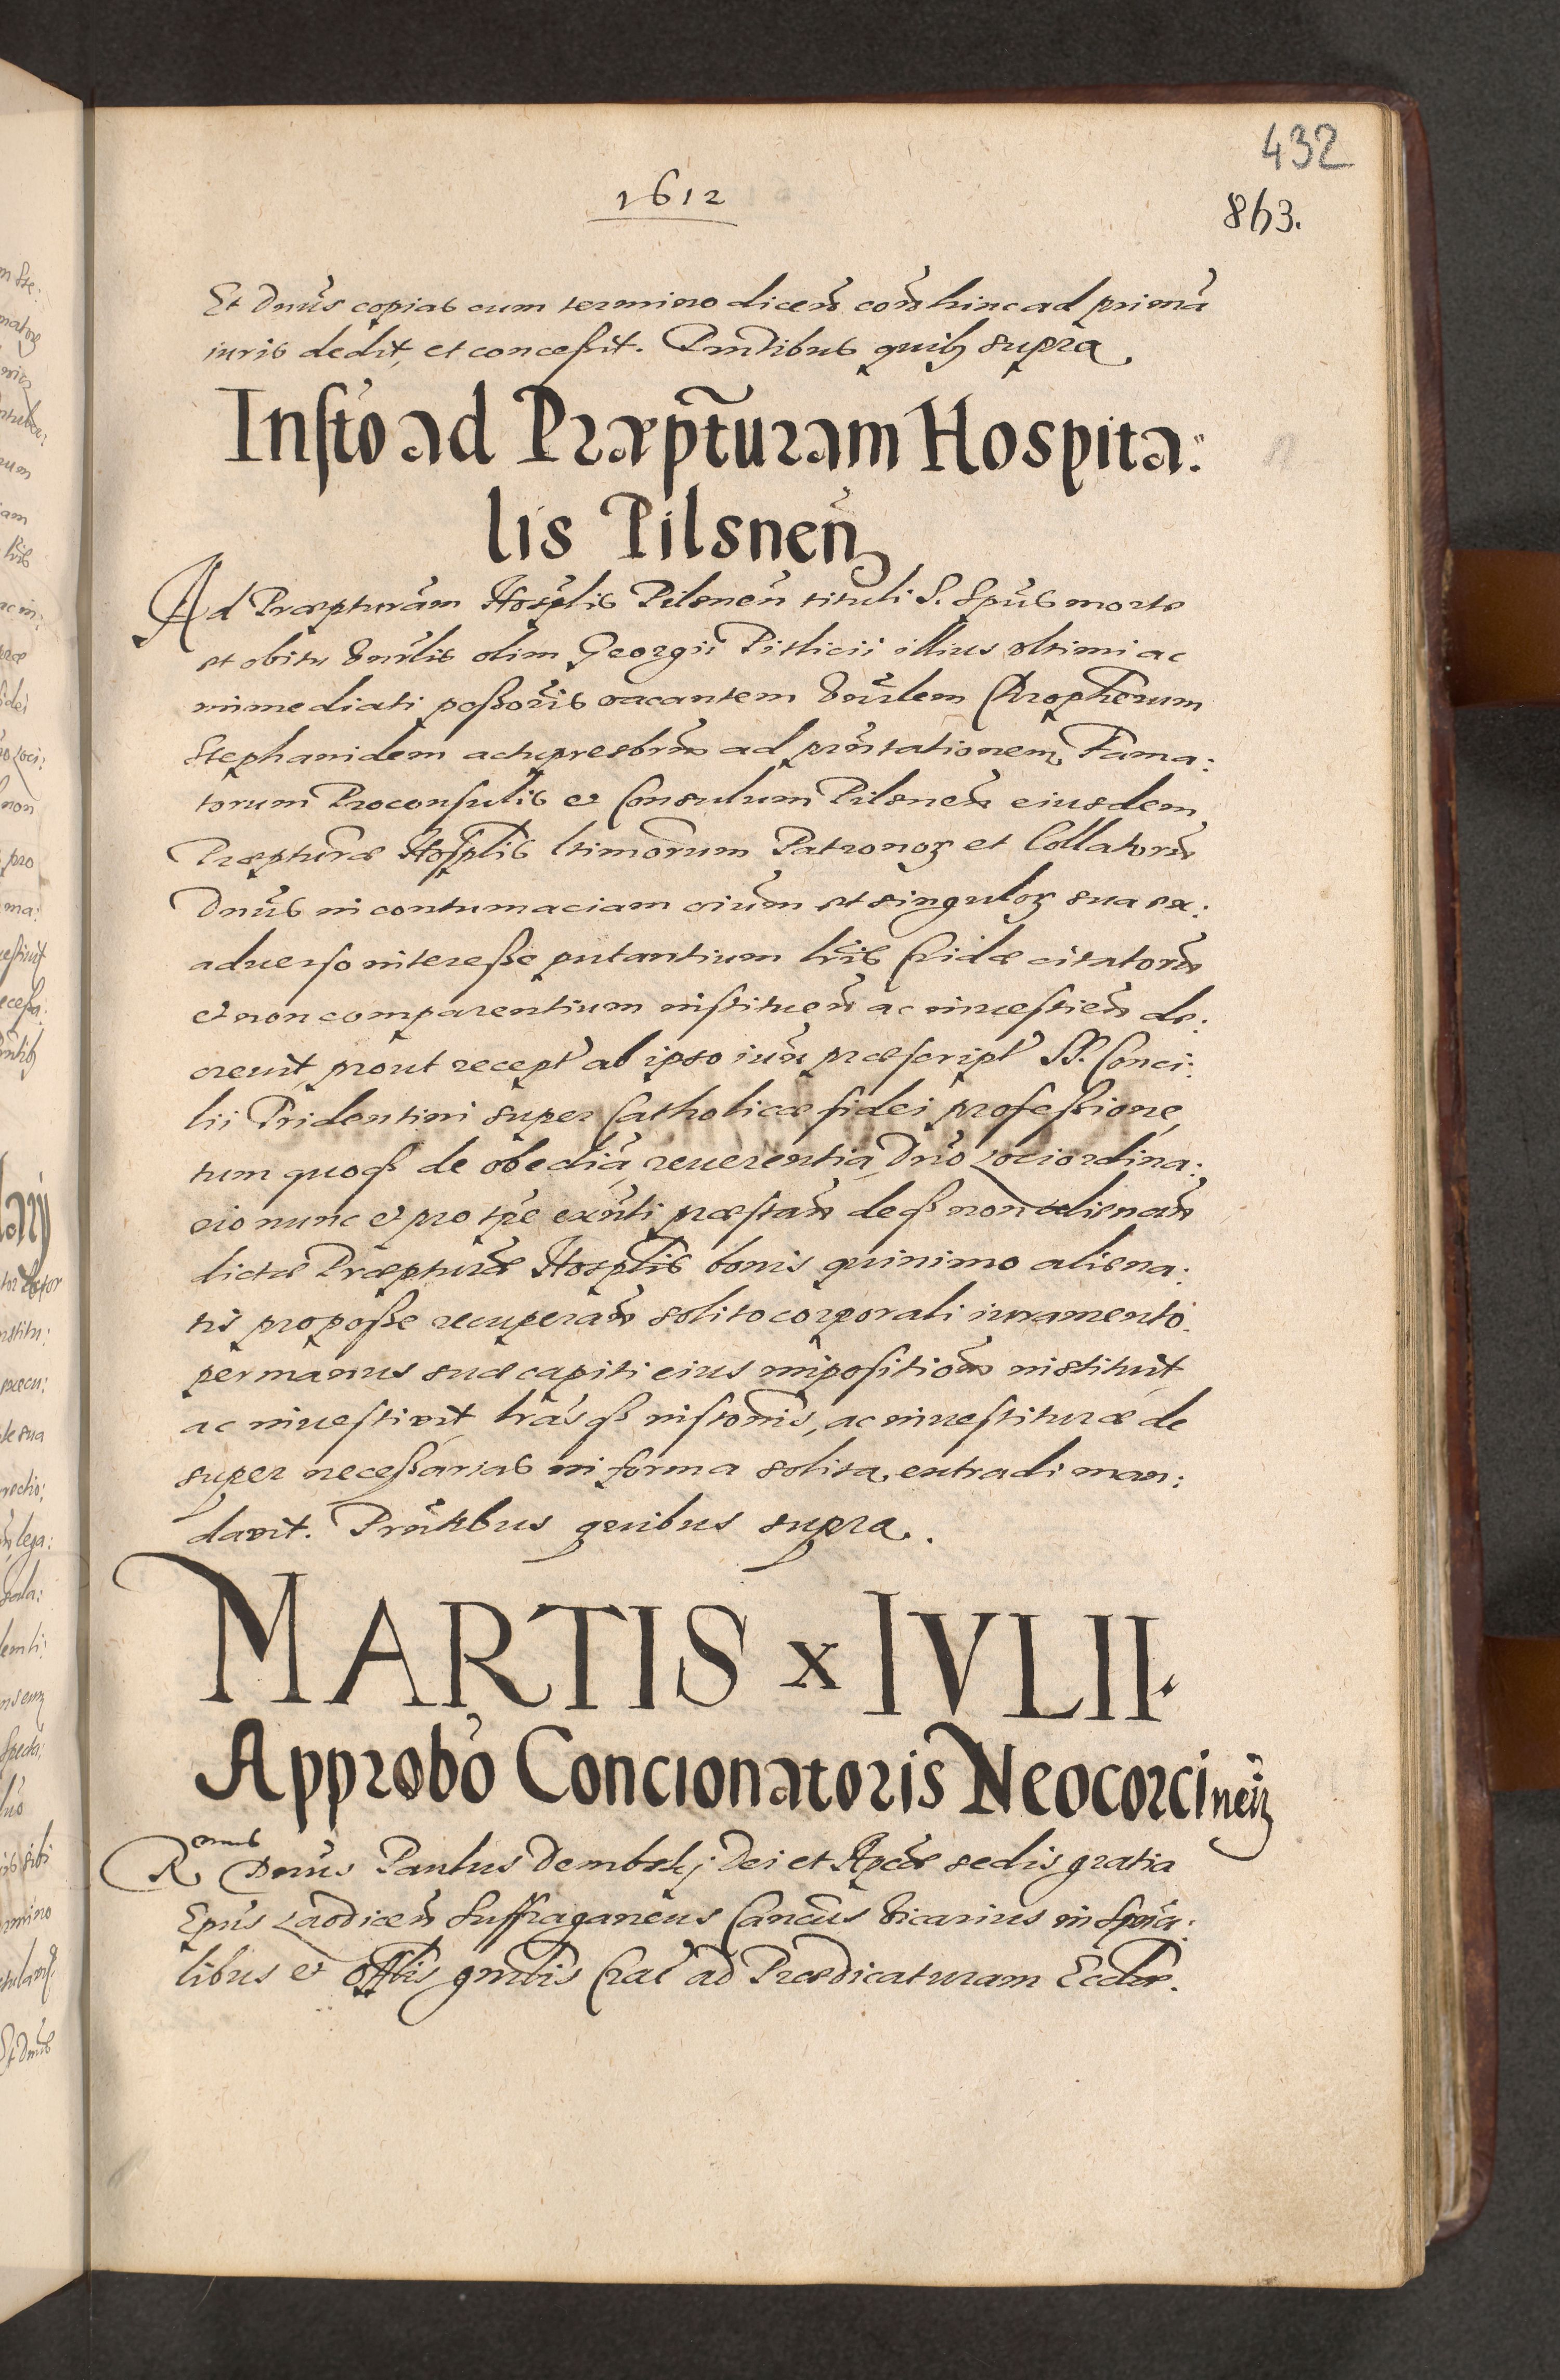 432
1612
863.
Et Dnũs copias cum termino diceñ coñ hinc ad primã
iuris dedit, et conceßit. Pn̄tibus quibȝ supra
Insto ad Præpt̄uram Hospita:
lis Pilsneñ
Ad Præpturam Hosplis Pilsneñ tituli S. Spũs morte
et obitu Vnrlis olim Georgii Pistlicii illius vltimi ac
immediati poßoris vacantem Vnrlem Chrophorum
Stephanidem actu presbrũ ad pn̄tationem Fama:
torum Proconsulis et Consulum Pilsneñ eiusdem
Præpturæ Hosplis ltimorum Patronoꝝ et Collatorũ
Dnũs in contumaciam oiũm et singuloꝝ sua ex:
aduerso intereße putantium lris Cridæ citatorũ
et non comparentium instituen̄ ac inuestien̄ de:
creuit, prout recept' ab ipso iurñ præscript' SS. Conci:
lii Tridentini super Catholicæ fidei profeßione,
tum quoqꝫ de obedia, reuerentia Dnõ Lociordina:
rio nunc et pro tpe exn̄ti præstan̄ deqꝫ non alienan̄
dictæ Præpturæ Hosplis bonis quinimo aliena:
tis pro poße recuperan̄ solito corporali iuramento
per manus suæ capiti eius impositionẽ instituit
ac inuestiuit, lrasqꝫ instonis, ac inuestituræ de
super neceßarias in forma solita, extradi man:
dauit. Pn̄tibus quibus supra.
MARTIS x IVLII.
Approbõ Concionatoris Neocorcineñ
Rmus Dnũs Paulus Dembski Dei et Apcæ sedis gratia
Epũs Laodicen̄ Suffraganeus Cancũs Vicarius in Spũa:
libus et Offlis gn̄rlis Crac̃ ad Prædicaturam Eccliæ.